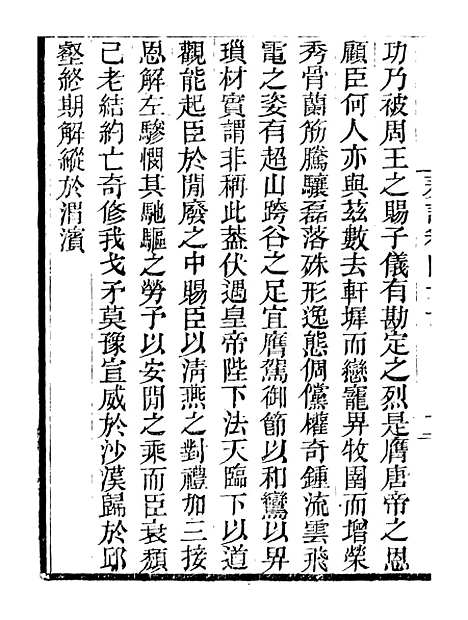 功乃被周王之賜子儀有勘定之烈是膺唐帝之恩
顧臣何人亦與茲數去軒墀而戀寵畀牧圉而增榮
秀骨蘭筋騰驤磊落殊形逸態倜儻權奇鍾流雲飛
電之姿有超山跨谷之足宜膺駕御節以和鸞以畀
瑣材實謂非稱此葢伏遇皇帝陛下法天臨下以道
觀能起臣於閒廢之中賜臣以清燕之對禮加三接
恩解左驂憫其馳驅之勞予以安閒之乘而臣衰頹
己老結約亡奇修我戈矛莫豫宣威於沙漠歸於邱
壑終期解縱於渭濱